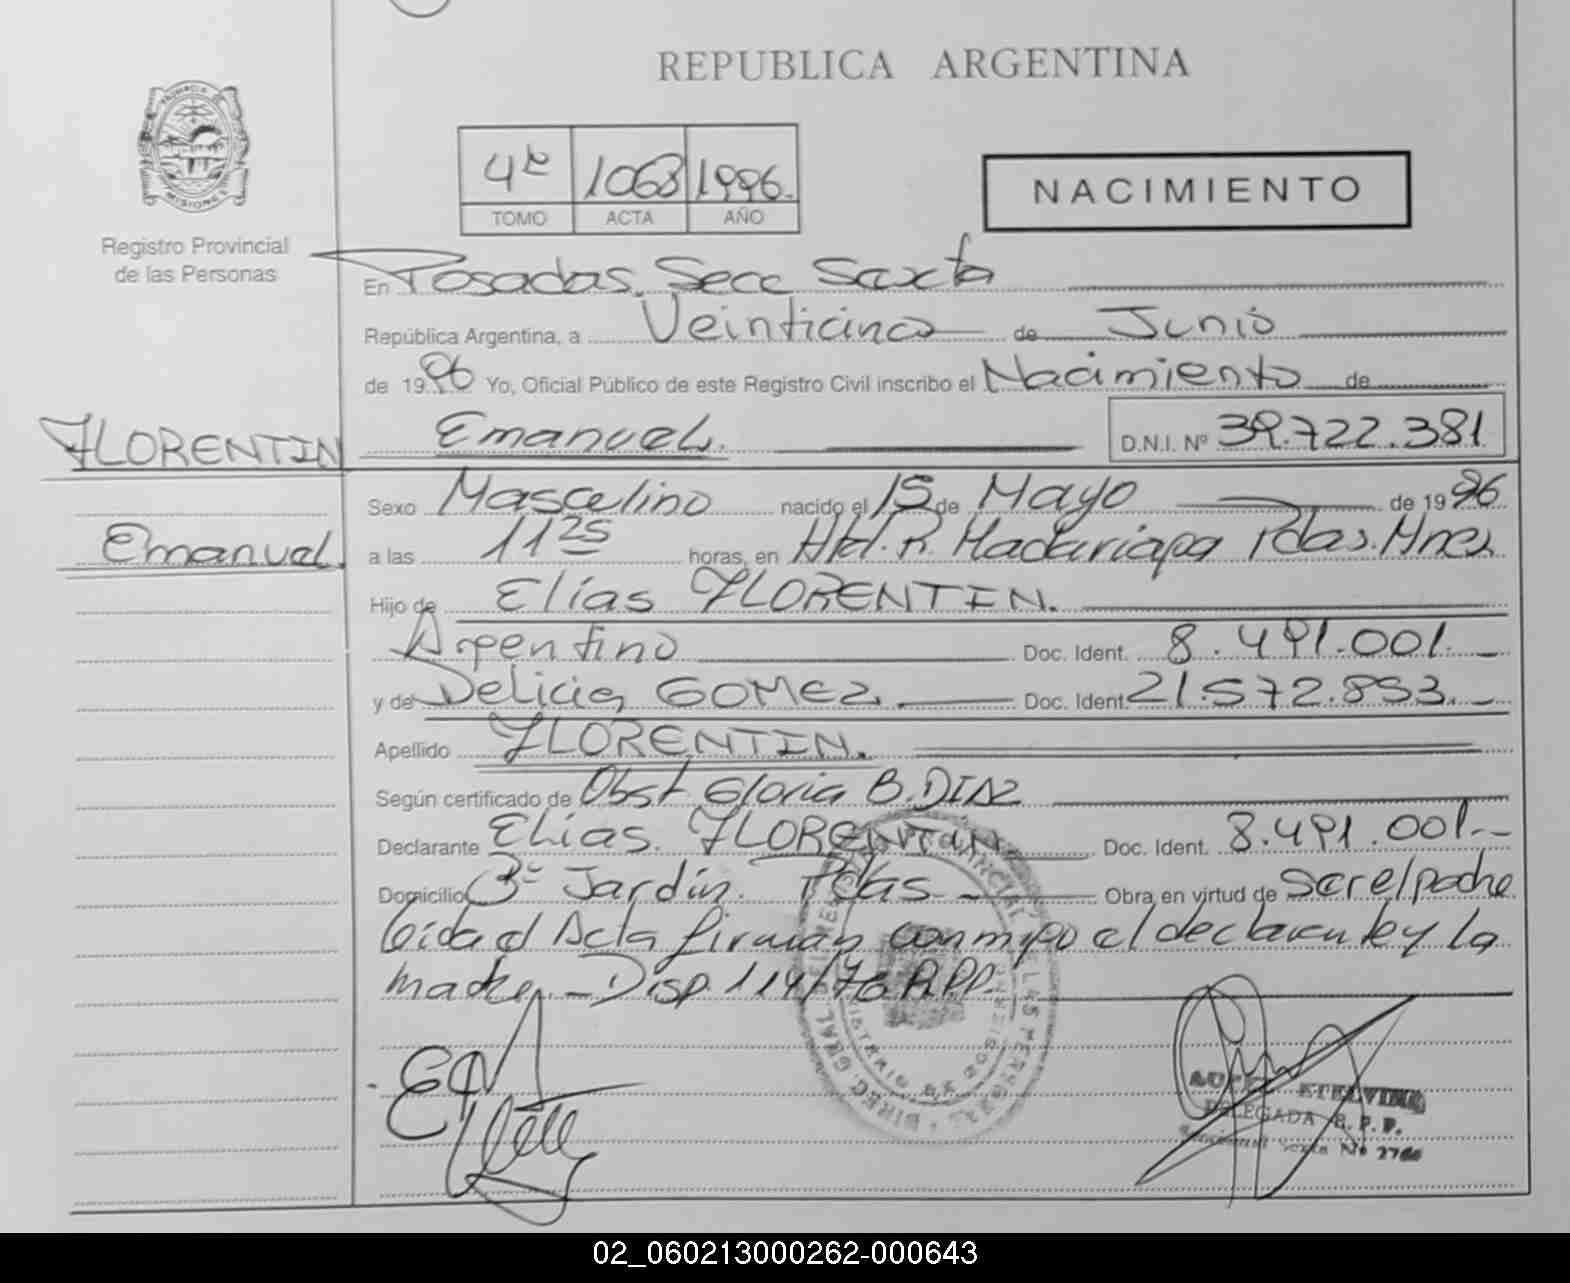 REPUBLICA ARGENTINA
PROVINCIA DE MISIONES
Registro Provincial
de las Personas
4º 1068 1996.
TOMO ACTA AÑO
NACIMIENTO
En Posadas. Secc Sexta
República Argentina, a Veinticinco de Junio
de 1996 Yo, Oficial Público de este Registro Civil inscribo el Nacimiento de
FLORENTIN Emanuel. D.N.I. Nº 39.722.381
Sexo Masculino nacido el 15 de Mayo de 1996
Emanuel.
a las 11 25 horas, en Htal. R. Madariaga Pdas. Mnes
Hijo de Elías FLORENTIN.
Argentino Doc. Ident. 8.491.001.
y de Delicia GOMEZ. Doc. Ident. 21.572.853.
Apellido FLORENTIN.
Según certificado de Obst Gloria B. DIAZ
Declarante Elías. FLORENTIN Doc. Ident. 8.491.001.
Domicilio 3º Jardín. Pdas Obra en virtud de
Leida el Acta firman conmigo el declarante y la
madre. Disp. 114/76 RPP.
ETELVINA
DELEGADA R. P. P.
Sexta Nº
02_060213000262-000643